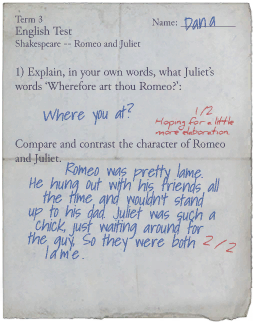 Term 3
Name: Dana
English Test
Shakespeare -- Romeo and Juliet
1) Explain, in your own words, what Juliet's
words 'Wherefore art thou Romeo?':
Where you at?
1/2
Hoping for a little
more elaboration.
Compare and contrast the character of Romeo
and Juliet.
Romeo was pretty lame.
He hung out with his friends all
the time and wouldn't stand
up to his dad. Juliet was such a
chick, just waiting around for
the guy. So they were both
lame.
2/2